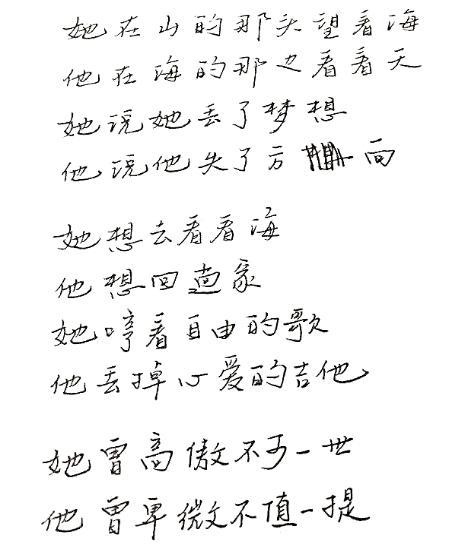 她在山的那头望看海
他在海的那边看看天
她说她丢了梦想
他说他失了方向
她想去看看海
他想回趟家
她哼着自由的歌
他丢掉心爱的吉他
她曾高傲不可一世
他曾卑微不值一提